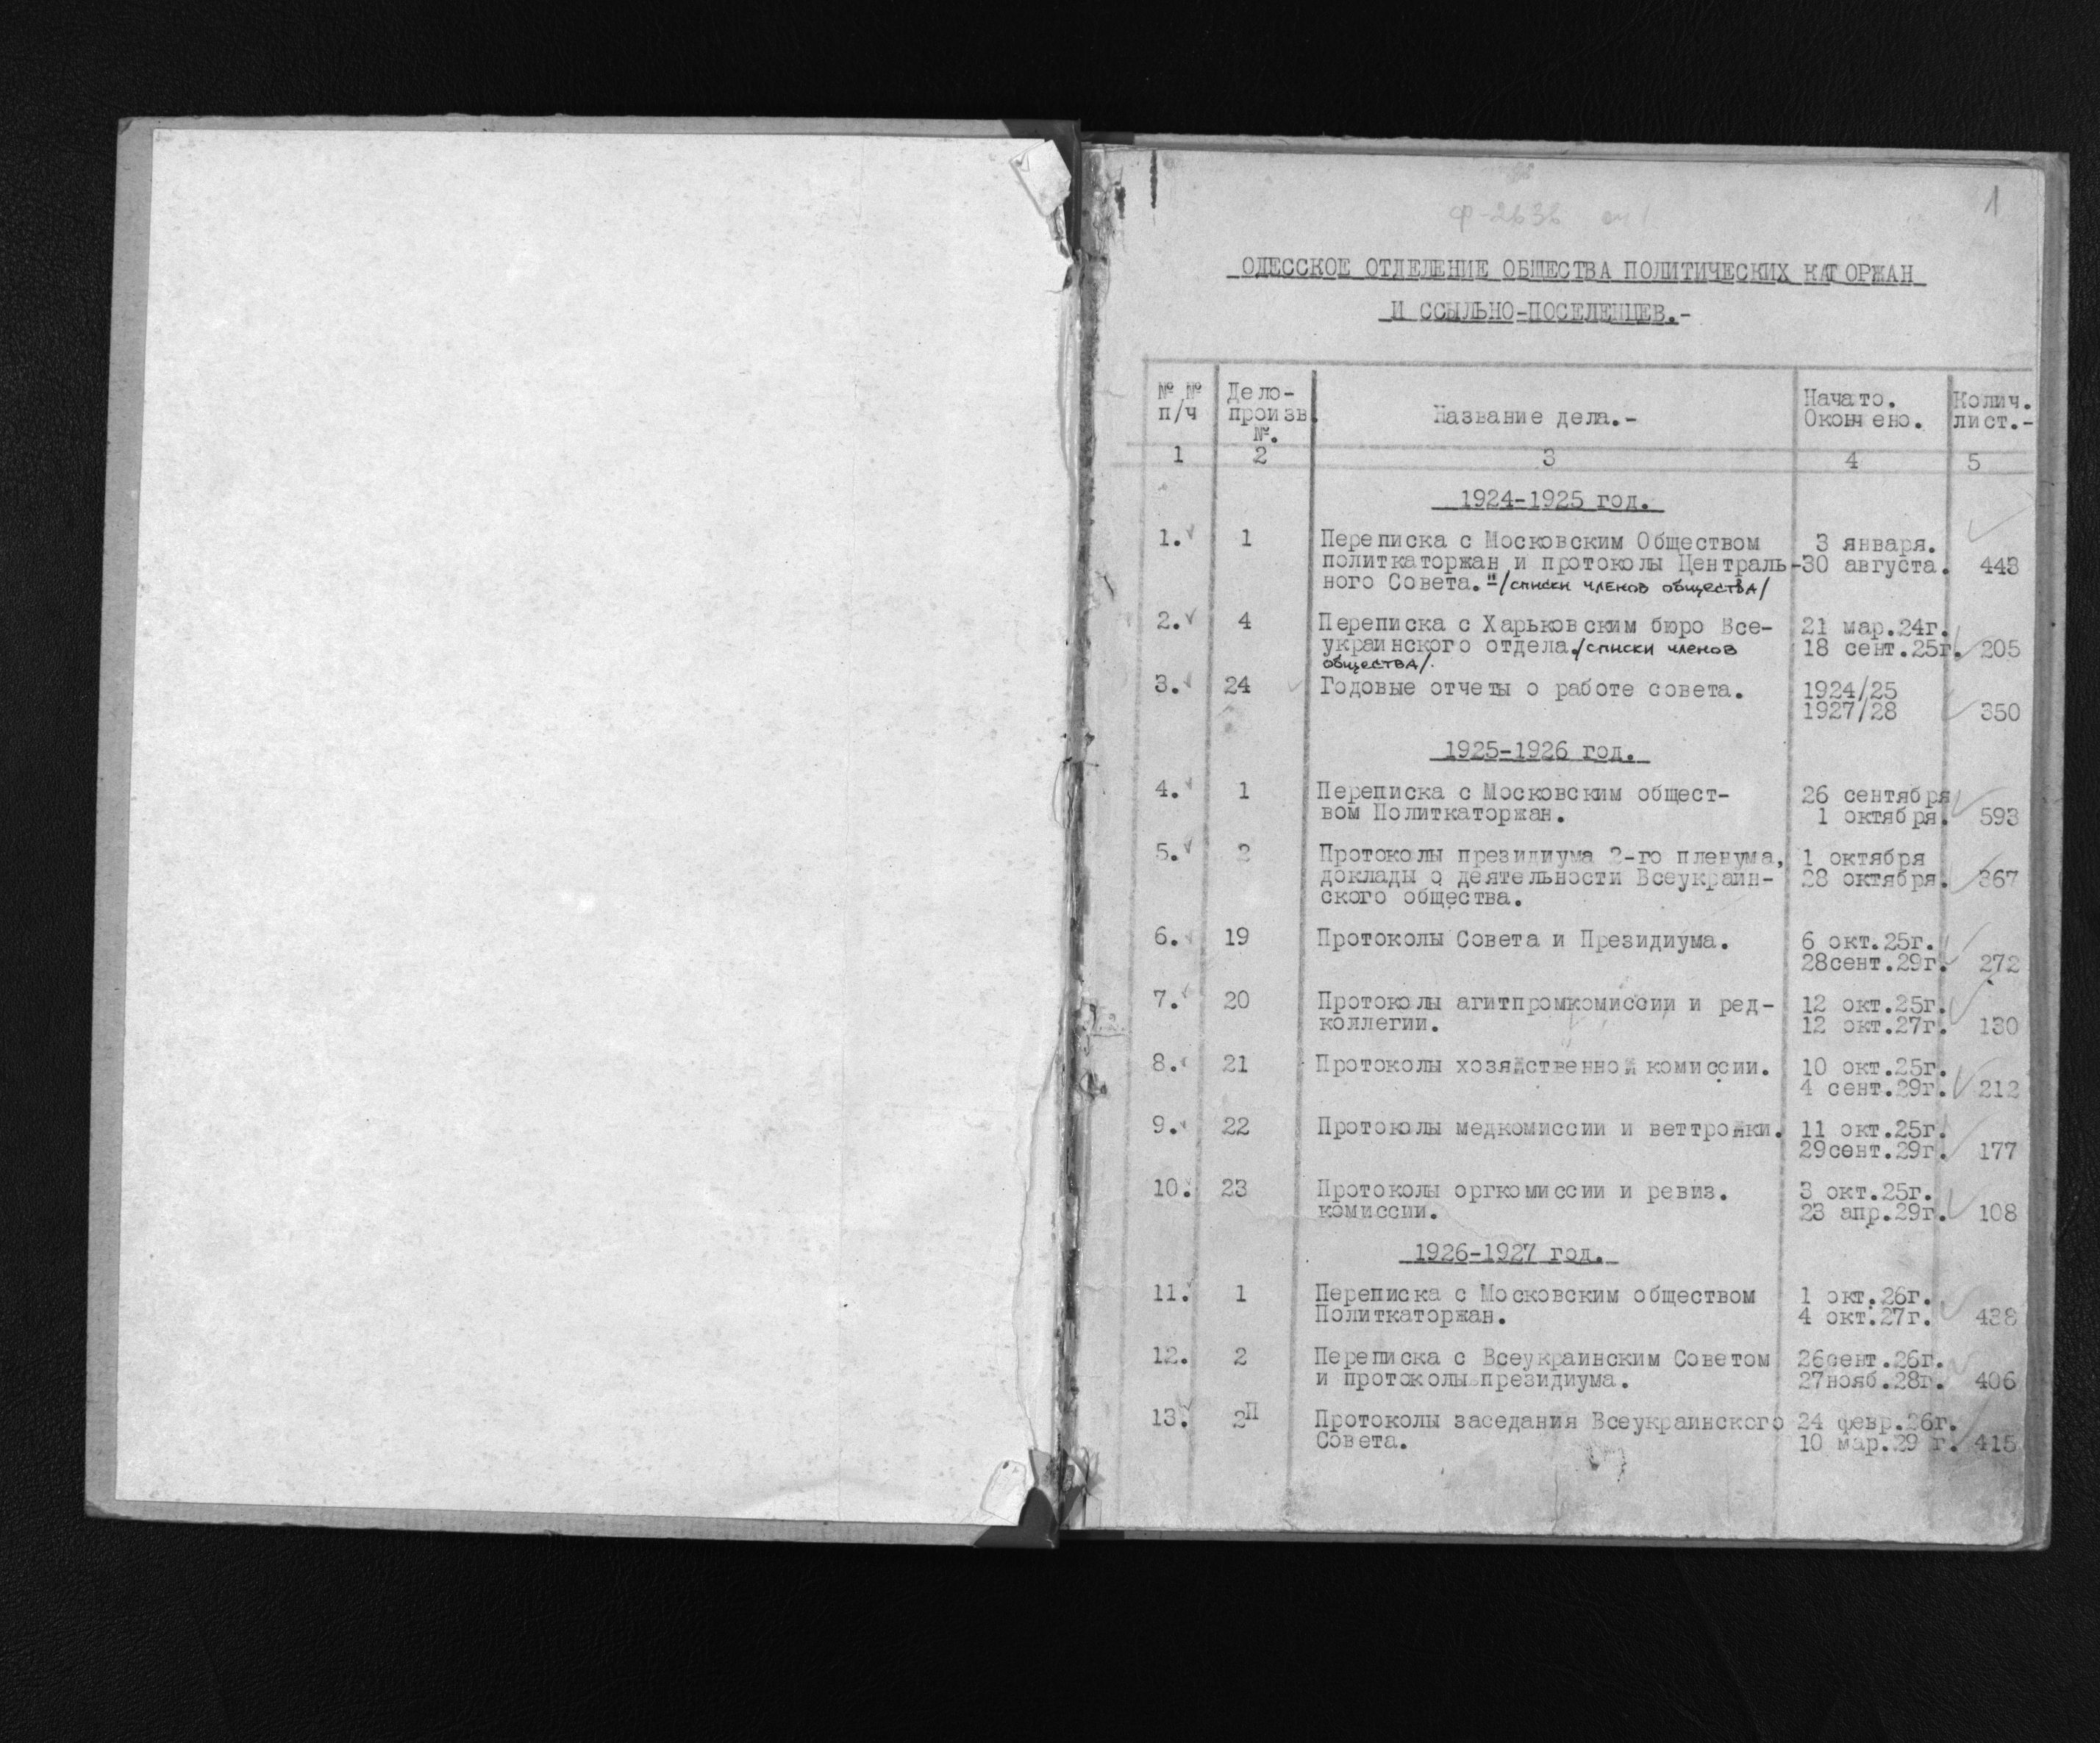 1
ф-2636 оп 1
ОДЕССКОЕ ОТДЕЛЕНИЕ ОБЩЕСТВА ПОЛИТИЧЕСКИХ КАТОРЖАН
И ССЫЛЬНО-ПОСЕЛЕНЦЕВ.-
№ № п/ч Дело-произв. №. Название дела.- Начато. Окончено. Колич. лист.-
1 2 3 4 5
1924-1925 год.
1. 1 Переписка с Московским Обществом 3 января.
политкаторжан и протоколы Централь- 30 августа. 443
ного Совета."/списки членов общества/
2. 4 Переписка с Харьковским бюро Все- 21 мар.24г.
украинского отдела./списки членов 18 сент.25г. 205
общества/.
3. 24 Годовые отчеты о работе совета. 1924/25
1927/28 350
1925-1926 год.
4. 1 Переписка с Московским общест- 26 сентября
вом Политкаторжан. 1 октября. 593
5. 2 Протоколы президиума 2-го пленума, 1 октября
доклады о деятельности Всеукраин- 28 октября. 367
ского общества.
6. 19 Протоколы Совета и Президиума. 6 окт.25г.
28сент.29г. 272
7. 20 Протоколы агитпромкомиссии и ред- 12 окт.25г.
коллегии. 12 окт.27г. 130
8. 21 Протоколы хозяйственной комиссии. 10 окт.25г.
4 сент.29г. 212
9. 22 Протоколы медкомиссии и веттройки. 11 окт.25г.
29сент.29г. 177
10. 23 Протоколы оргкомиссии и ревиз. 3 окт.25г.
комиссии. 23 апр.29г. 108
1926-1927 год.
11. 1 Переписка с Московским обществом 1 окт.26г.
Политкаторжан. 4 окт.27г. 438
12. 2 Переписка с Всеукраинским Советом 26сент.26г.
и протоколы президиума. 27нояб.28г. 406
13. 2II Протоколы заседания Всеукраинского 24 февр.26г.
Совета. 10 мар.29 г. 415